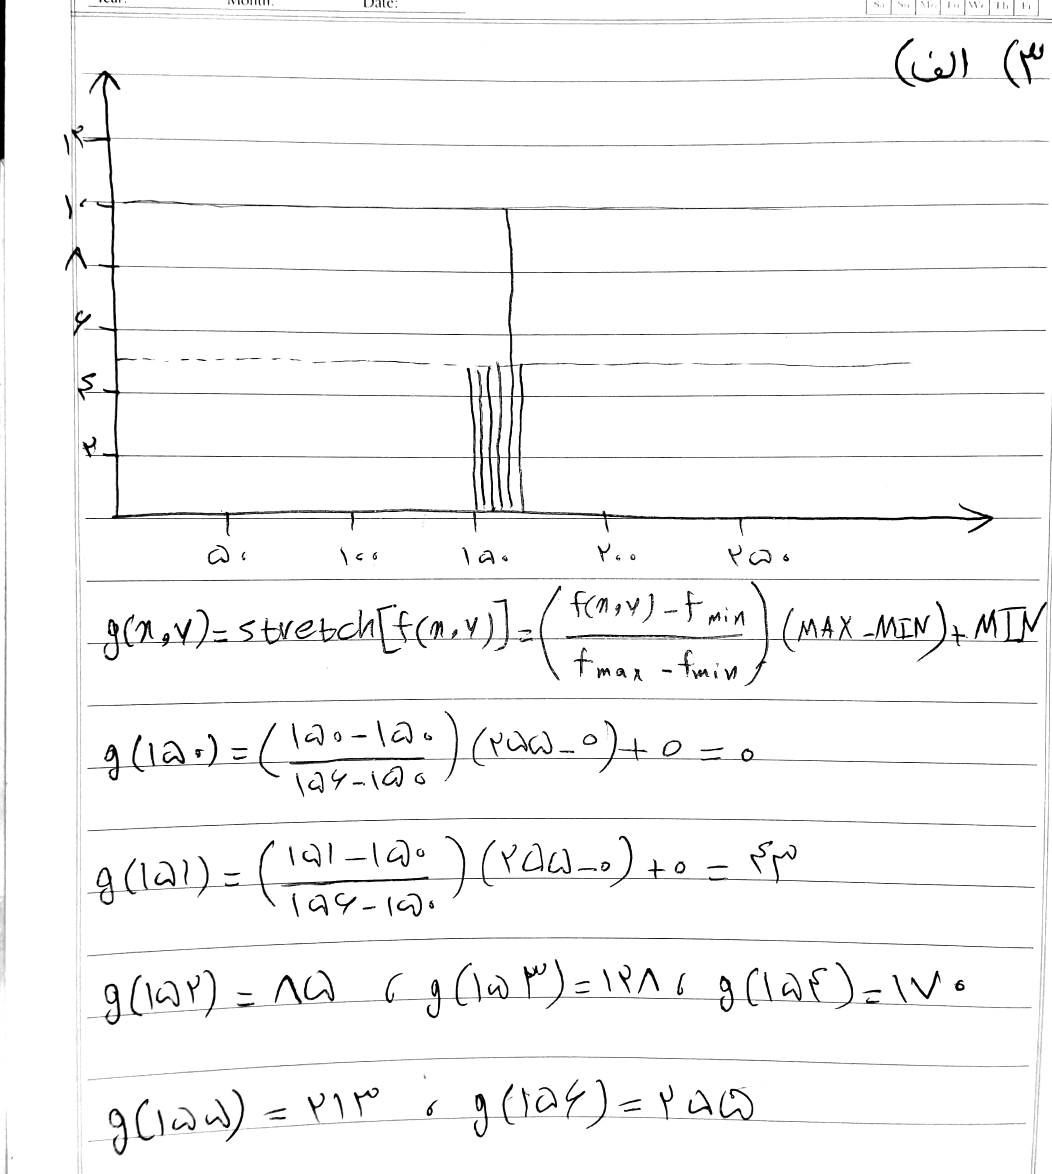 Year: Month: Date: Sa Su Mo Tu We Th Fr
۳) الف)
۱۲
۱۰
۸
۶
۴
۲
۵۰ ۱۰۰ ۱۵۰ ۲۰۰ ۲۵۰
g(x,y)=stretch[f(x,y)]=((f(x,y)-fmin)/(fmax-fmin))(MAX-MIN)+MIN
g(۱۵۰)=((۱۵۰-۱۵۰)/(۱۵۶-۱۵۰))(۲۵۵-۰)+۰=۰
g(۱۵۱)=((۱۵۱-۱۵۰)/(۱۵۶-۱۵۰))(۲۵۵-۰)+۰=۴۳
g(۱۵۲)=۸۵ ، g(۱۵۳)=۱۲۸ ، g(۱۵۴)=۱۷۰
g(۱۵۵)=۲۱۳ ، g(۱۵۶)=۲۵۵